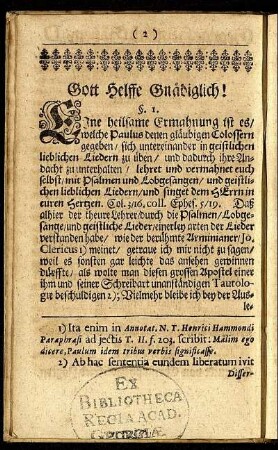 ( 2 )
Gott Helffe Gnädiglich!
§. 1.
EIne heilsame Ermahnung ist es/
welche Paulus denen gläubigen Colossern
gegeben/ sich untereinander in geistlichen
lieblichen Liedern zu üben/ und dadurch ihre An-
dacht zu unterhalten/ lehret und vermahnet euch
selbst/ mit Psalmen und Lobgesängen/ und geistli-
chen lieblichen Liedern/ und singet dem HErrn in
euren Hertzen. Col. 3/16, coll. Ephes. 5/19. Daß
alhier der theure Lehrer/ durch die Psalmen/ Lobge-
sänge/ und geistliche Lieder/ einerley arten der Lieder
verstanden habe/ wie der berühmte Arminianer Jo.
Clericus 1) meinet/ getraue ich mir nicht zu sagen/
weil es sonsten gar leicht das ansehen gewinnen
dürffte/ als wolte man diesen grossen Apostel einer
ihm und seiner Schreibart unanständigen Tautolo-
gie beschuldigen 2); Vielmehr bleibe ich bey der Aus-
le-
1) Ita enim in Annotat. N. T. Henrici Hammondi
Paraphrasi adjectis T. II. f. 203. scribit: Malim ego
dicere, Paulum idem tribus verbis significasse.
2) Ab hac sententia eundem liberatum ivit
Differ-
EX
BIBLIOTHECA
REGIA ACAD.
GEORGIAE